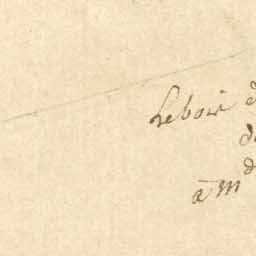 Lebois d
d
d
à M